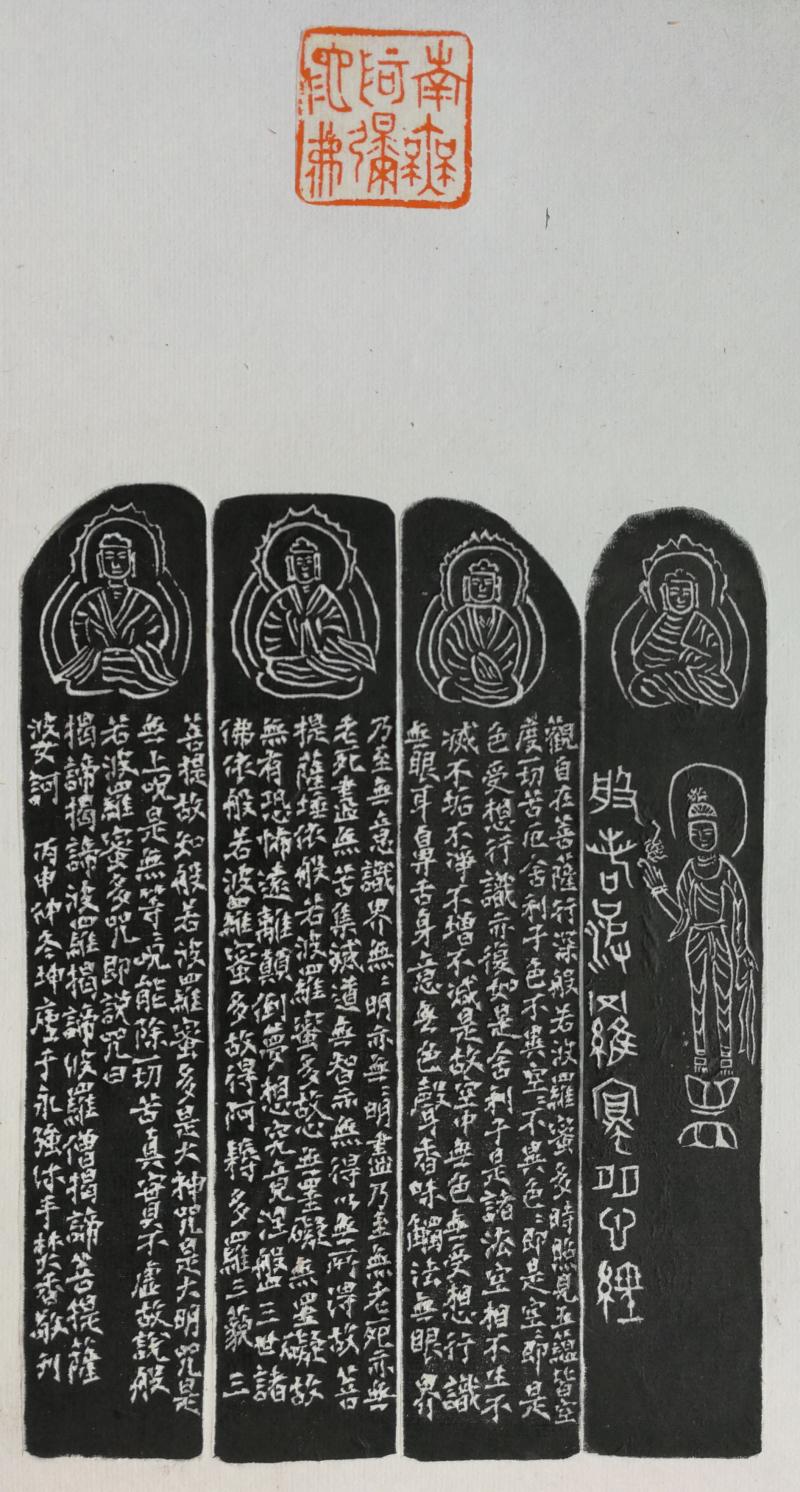 南無
阿彌
陀佛
般若波羅蜜多心經
觀自在菩薩行深般若波羅蜜多時照見五蘊皆空
度一切苦厄舍利子色不異空〻不異色〻即是空〻即是
色受想行識亦復如是舍利子是諸法空相不生不
滅不垢不淨不增不減是故空中無色無受想行識
無眼耳鼻舌身意無色聲香味觸法無眼界
乃至無意識界無〻明亦無〻明盡乃至無老死亦無
老死盡無苦集滅道無智亦無得以無所得故菩
提薩埵依般若波羅蜜多故心無罣礙無罣礙故
無有恐怖遠離顛倒夢想究竟涅槃三世諸
佛依般若波羅蜜多故得阿耨多羅三藐三
菩提故知般若波羅蜜多是大神咒是大明咒是
無上呪是無等〻呪能除一切苦真實不虛故說般
若波羅蜜多咒即說咒曰
揭諦揭諦波羅揭諦波羅僧揭諦菩提薩
婆訶 丙申仲冬坤于永強沐手焚香敬刊